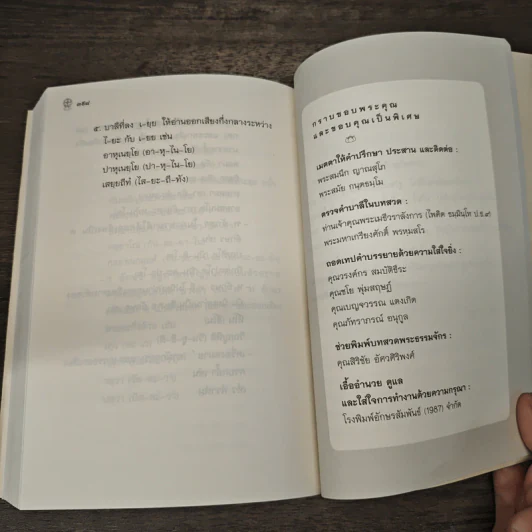 ๓๕๘
๕. บาลีที่ลง เ-ยฺย ให้อ่านออกเสียงกึ่งกลางระหว่าง
ไ-ยะ กับ เ-ยย เช่น
อาหุเนยฺโย (อา-หุ-ไน-โย)
ปาหุเนยฺโย (ปา-หุ-ไน-โย)
เสยฺยถีทํ (ไส-ยะ-ถี-ทัง)
กราบขอบพระคุณ
และขอบคุณเป็นพิเศษ
เมตตาให้คำปรึกษา ประสาน และติดต่อ :
พระสมนึก ญาณสุโภ
พระสมัย กนฺตธมฺโม
ตรวจคำบาลีในบทสวด :
ท่านเจ้าคุณพระเมธีวราลังการ (ไพดิต ชมฺมินฺโท ป.ธ.๙)
พระมหาเกรียงศักดิ์ พรหมสโร
ถอดเทปคำบรรยายด้วยความใส่ใจยิ่ง :
คุณวรงค์กร สมบัติธีระ
คุณชโย พุ่มสฤษฎ์
คุณเบญจวรรณ แดงเกิด
คุณภัทราภรณ์ อนุกูล
ช่วยพิมพ์บทสวดพระธรรมจักร :
คุณสิริชัย อัศวศิริพงศ์
เอื้ออำนวย ดูแล
และใส่ใจการทำงานด้วยความกรุณา :
โรงพิมพ์อักษรสัมพันธ์ (1987) จำกัด